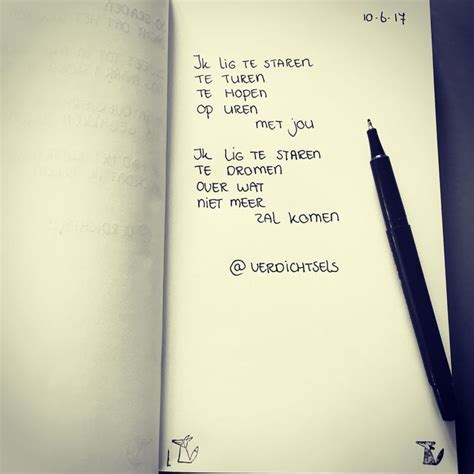 10-6-17
Ik lig te staren
te turen
te hopen
op uren
met jou
Ik lig te staren
te dromen
over wat
niet meer
zal komen
@verdichtsels